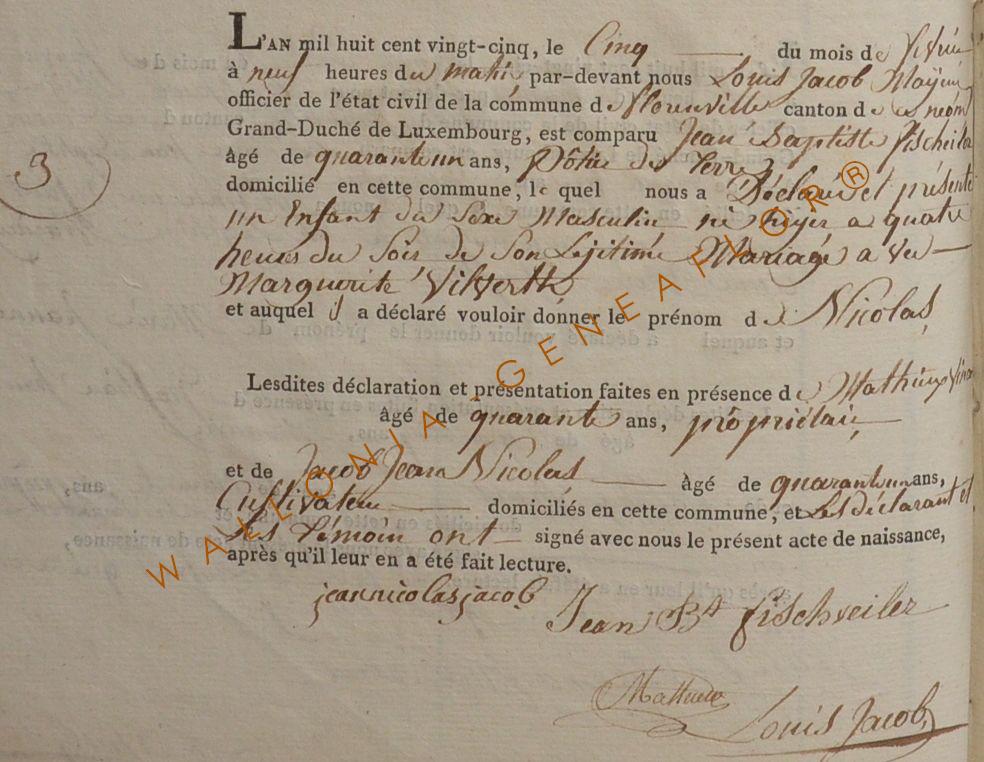 L'AN mil huit cent vingt-cinq, le Cinq du mois de
à neuf heures du matin par-devant nous Louis Jacob
officier de l'état civil de la commune de Florenville canton de
Grand-Duché de Luxembourg, est comparu Jean Baptiste
3
âgé de quarante un ans, Pôtié de Terre
domicilié en cette commune, le quel nous a Déclaré et présenté
un Enfant du Sexe Masculin né hyer a quatre
heures du Soir de Son Légitime Mariage a vec
Marguerite
et auquel il a déclaré vouloir donner le prénom de Nicolas
Lesdites déclaration et présentation faites en présence de
âgé de quarante ans, propriétaire
et de Jacob Jean Nicolas âgé de quarante un ans,
Cultivateur domiciliés en cette commune; et Les déclarant et
Les témoin ont signé avec nous le présent acte de naissance,
après qu'il leur en a été fait lecture.
jeannicolasjacob
Jean Bte fischveiler
Louis Jacob
WALLONIA GENEAFLOR®